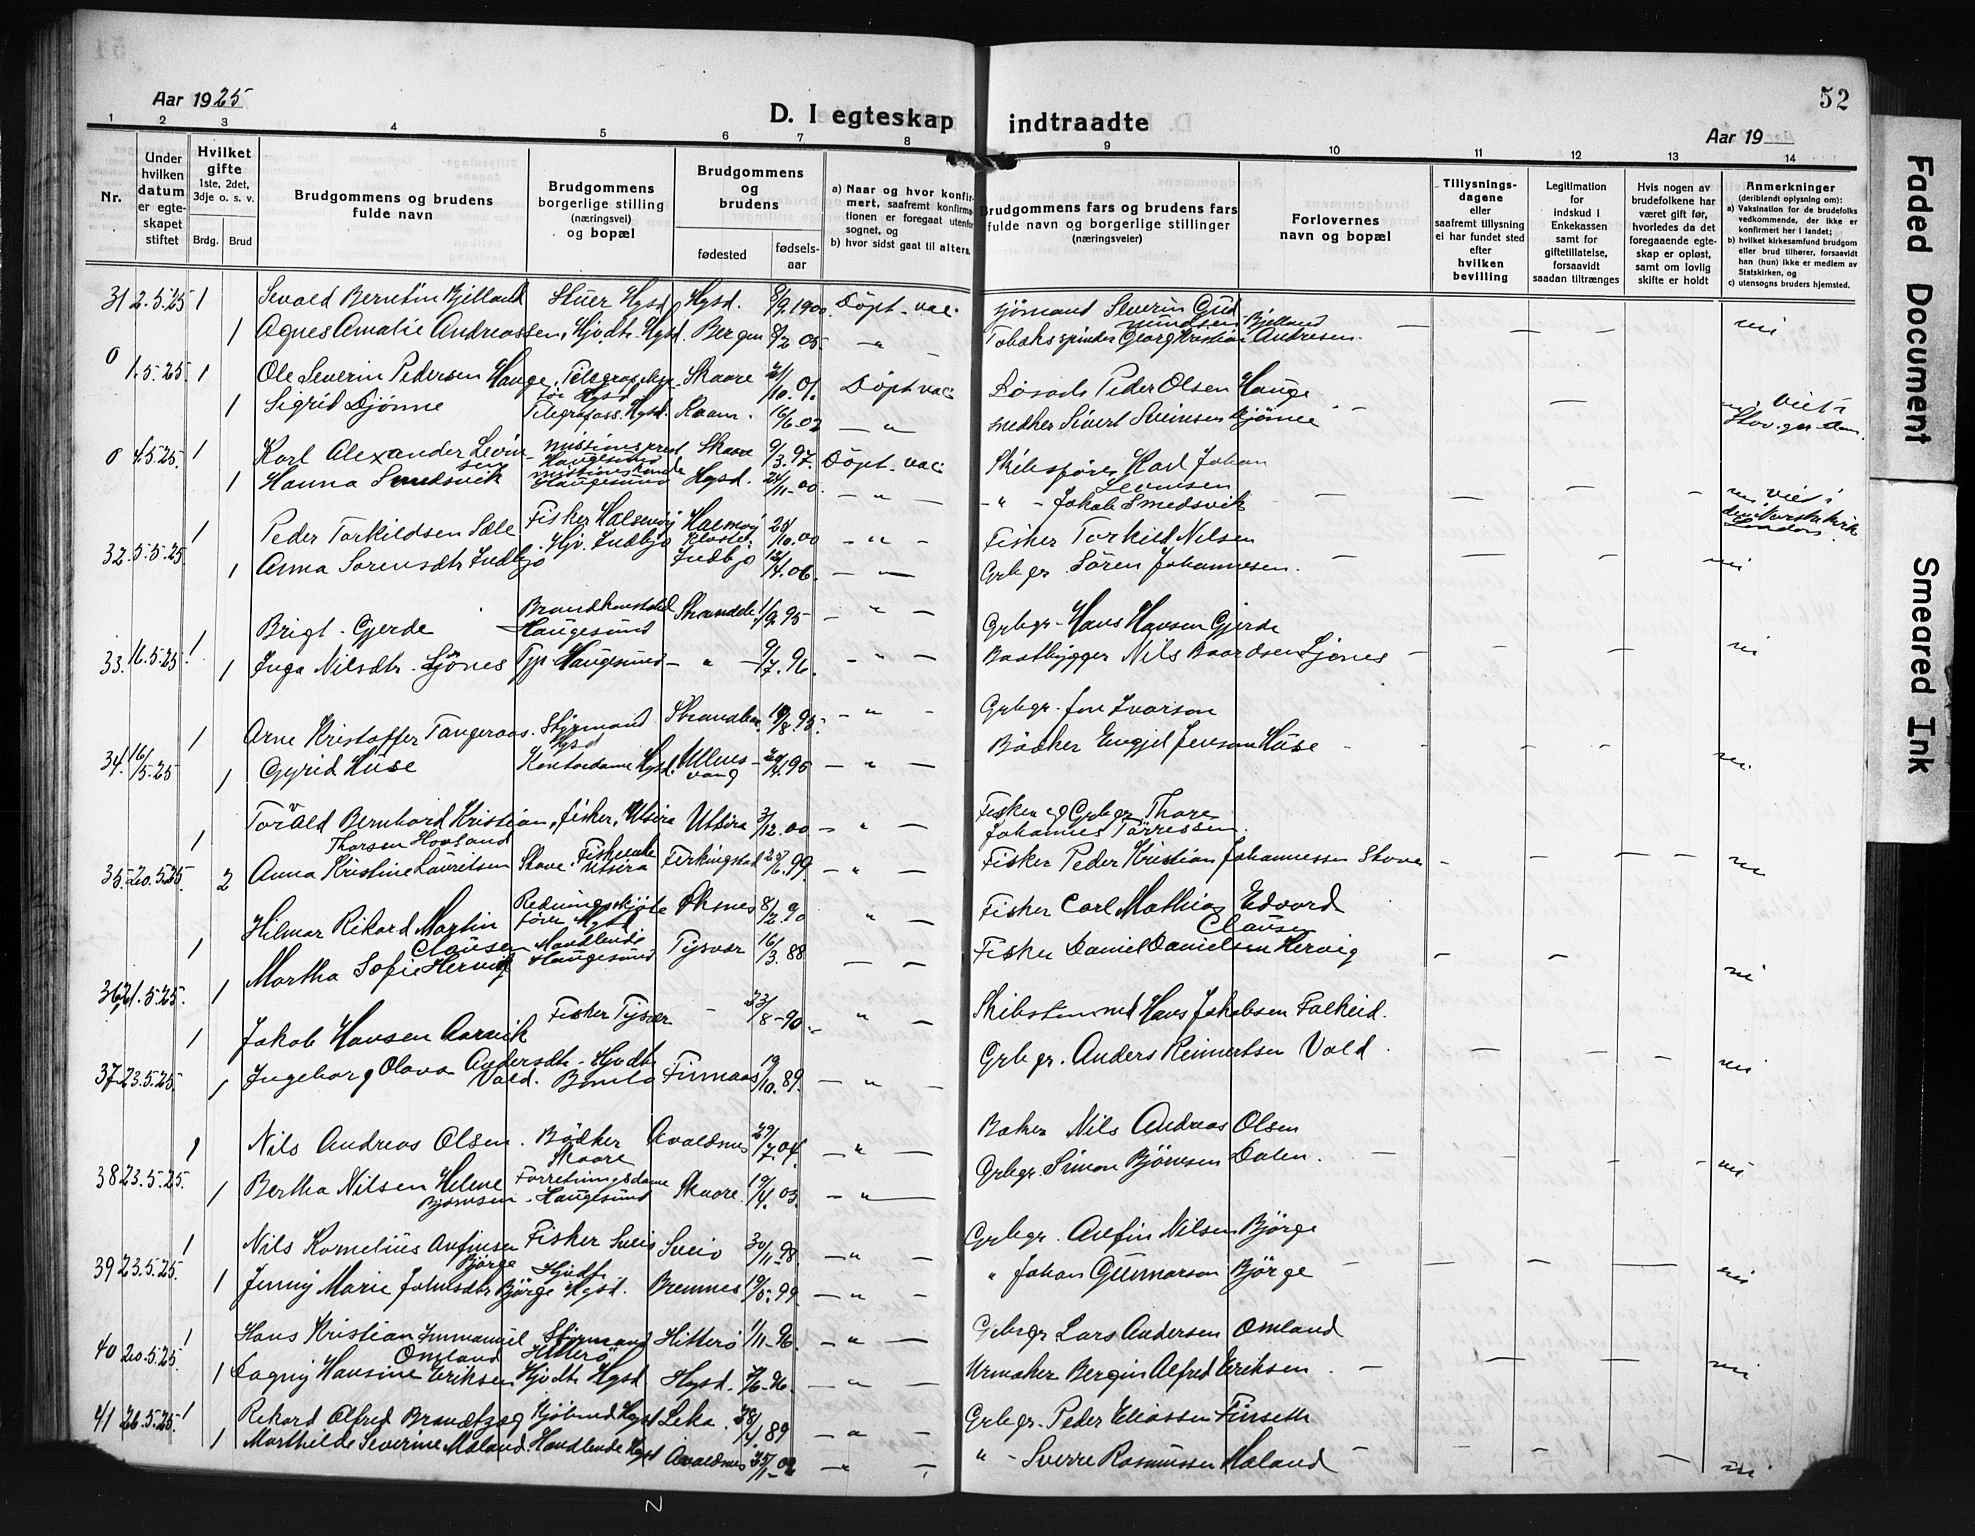 52
Aar 1925
D. I egteskap indtraadte
Aar 19
1 2 3 4 5 6 7 8 9 10 11 12 13 14
Nr.
Under hvilken datum er egteskapet stiftet
Hvilket gifte
1ste, 2det, 3dje o. s. v.
Brdg. Brud
Brudgommens og brudens fulde navn
Brudgommens borgerlige stilling (næringsvei) og bopæl
Brudgommens og brudens
fødested fødselsaar
a) Naar og hvor konfirmert, saafremt konfirmationen er foregaat utenfor sognet, og
b) hvor sidst gaat til alters.
Brudgommens fars og brudens fars fulde navn og borgerlige stillinger (næringsveier)
Forlovernes navn og bopæl
Tillysningsdagene eller saafremt tillysning ei har fundet sted efter hvilken bevilling
Legitimation for indskud i Enkekassen samt for giftetillatelse, forsaavidt saadan tiltrænges
Hvis nogen av brudefolkene har været gift før, hvorledes da det foregaaende egteskap er opløst, samt om lovlig skifte er holdt
Anmerkninger
(deriblandt oplysning om):
a) Vaksination for de brudefolks vedkommende, der ikke er konfirmert her i landet;
b) hvilket kirkesamfund brudgom eller brud tilhører, forsaavidt han (hun) ikke er medlem av Statskirken, og
c) utensogns bruders hjemsted.
31 2.5.25 1 Sevald Berntin Bjelland Stuer Hgsd Hgsd. 8/9.1900 Döpt - vac. Sjømand Severin Gudmundsen Bjelland
1 Agnes Amalie Andreassen, Hjvdtr. Hgsd. Bergen 8/2 05. - " - Tobakspinder Georg Kristian Andresen. nei
0 1.5.25. 1 Ole Severin Pedersen Hauge, Skaare 21/10.01. Döpt. vac. Løsarb. Peder Olsen Hauge
1 Sigrid Djønne Telegrafass. Hgsd. 16/6-02 - " - Sivert Djønne Viet i
0 4.5.25. 1 Karl Alexander Levinsen missionsprest Haugesund Skaare 9/3.97. Döpt. vac. Skibsfører Karl Johan Levinsen
1 Hanna Smedsvik Haugesund Hgsd. 24/11-00. - " - - " - Jakob Smedsvik Viet i den Norske kirke London.
32. 5.5.25. 1 Peder Torkildsen Sæle Fisker - " - Fisker Torkild Nilsen
1 Anna Sorensdtr. Indbjo Hjv. Indbjo Indbjo 12/4.06. - " - Grbgr. Sören Johannesen. nei
33. 16.5.25 1 Brigt. Gjerde Haugesund Strandeb. 1/9.95 - " - Grbgr. Hans Hansen Gjerde
1 Inga Nilsdtr. Ljönes Typ. Haugesund - " - 9/7.96. - " - Baatbygger Nils Baardsen Ljones nei
34. 16/5-25 1 Arne Kristoffer Tangeraas. Styrmand Hgsd Strandbar. 19/8.95. - " - Grbgr. Jon Ivarson
1 Gyrid Huse Kontordame Hgsd. Ullensvang - " - Bödker Engjel Jenson Huse nei.
35. 20.5.25. 1 Torald Bernhard Kristian Thorsen Hovland, Fisker, Utsira Utsira 3/12.00 - " - Fisker og Grbgr. Thore Johannes Törressen.
2 Anna Kristine Lauritsen Stove, Fiskerenke Utsira Ferkingstad 29/6.99. - " - Fisker Peder Kristian Johannessen Stove nei
36 21.5.25. 1 Hilmar Rikard Martin Clausen Redningsskjöte fører Hgsd Öksnes 8/2.90 " - Fisker Carl Mathias Edvard Clausen
1 Martha Sofie Hervig Handlende Haugesund Tysvær 16/3.88 - - Fisker Daniel Danielsen Hervig nei
37 23.5.25. 1 Jakob Hansen Aarvik Fisker Tysvær - 23/8-90. " - Hans Jakobsen Falkeid.
1 Ingeborg Olava Andersdtr. Vold. Hjvdtr. Finnaas 19/10.89. - " - Grbgr. Anders Reinertsen Vold. nei
38 23.5.25. 1 Nils Andreas Olsen. Bödker Skaare Avaldsnes 29/7.04. - " - Baker Nils Andreas Olsen
1 Bertha Nilsen Helene Bjørnsen Forretningsdame Haugesund Skaare 19/4.03. - " - Grbgr. Simon Björnsen Dalen. nei
39 23.5.25. 1 Nils Kornelius Anfinsen Björge Fisker Sveio Sveio 30/11.98. - " - Grbgr. Anfin Nilsen Björge
1 Jenny Marie Johnsdtr. Björge Hgsd. Bremnes 19/5.99 - " - " Johan Gunnarson Björge nei
40 20.5.25. 1 Hans Kristian Immanuel Omland Styrmand Hitterö Hitterö 1/11-96 - " - Grbgr. Lars Andersen Omland
1 Dagny Hansine Eriksen Hjvdtr. Hgsd. Hgsd. 7/6-96. - " - Urmaker Bergin Alfred Eriksen. nei
41 26.5.25. 1 Rikard Alfred Brandtzæg Kjöbmd. Hgsd Leka. 28/4.89 - " - Grbgr. Peder Eliassen Finseth
1 Marthilde Severine Maland. Handlende Hgsd Avaldsnes 25/1-02 - " - " - Sverre Rasmussen Maland nei
Faded Document
Smeared Ink